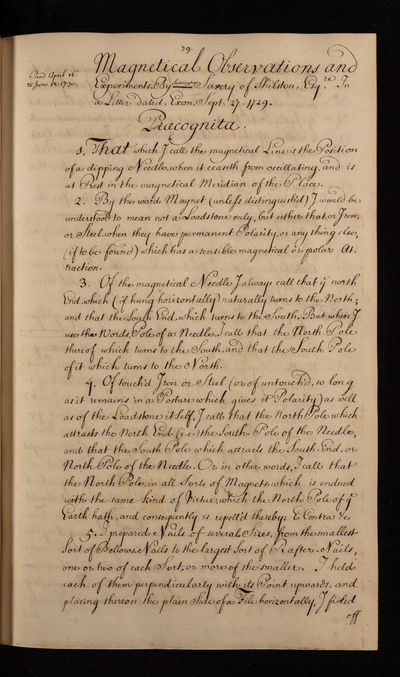 79.
Magnetical Observations and
Read April 16.
to June 18. 1730.
Experiments. By Servington Savery of Shilston, Esq.re In
a Letter dated, Exon, Sept. 27. 1729.
Præcognita.
1. That which I call the magnetical Line is the Position
of a dipping Needle, when it ceaseth from oscillating, and is
at Rest in the magnetical Meridian of the Place.
2. By the word Magnet (unless distinguish'd) I would be
understood to mean not a Loadstone only, but either that, or Iron,
or Steel, when they have permanent Polarity, or any thing else,
(if to be found) which has a sensible magnetical or polar At-
traction.
3. Of the magnetical Needle I always call that ye north
End, which (if hung horizontally) naturally turns to the North;
and that the South End, which turns to the South. But when I
use the Words, Pole of a Needle, I call that the North Pole
thereof which turns to the South, and that the South Pole
of it which turns to the North.
4. Of touch'd Iron or Steel (or of untouch'd, so long
as it remains in a Posture which gives it Polarity) as well
as of the Loadstone it self, I call that the North Pole which
attracts the North End (i.e.) the South Pole of the Needle,
and that the South Pole which attracts the South End, or
North Pole of the Needle. Or in other words, I call that
the North Pole, in all Sorts of Magnets, which is endued
with the same kind of Virtue, which the North Pole of ye
Earth hath, and consequently is repell'd thereby: & Contra &c.
5. I prepared Nails of several Sizes, from the smallest
Sort of Bellows-Nails to the largest Sort of Rafter-Nails,
one or two of each Sort, or more of the smaller. I held
each of them perpendicularly with its Point upwards, and
placing thereon the plain Side of a File horizontally, I filed
off